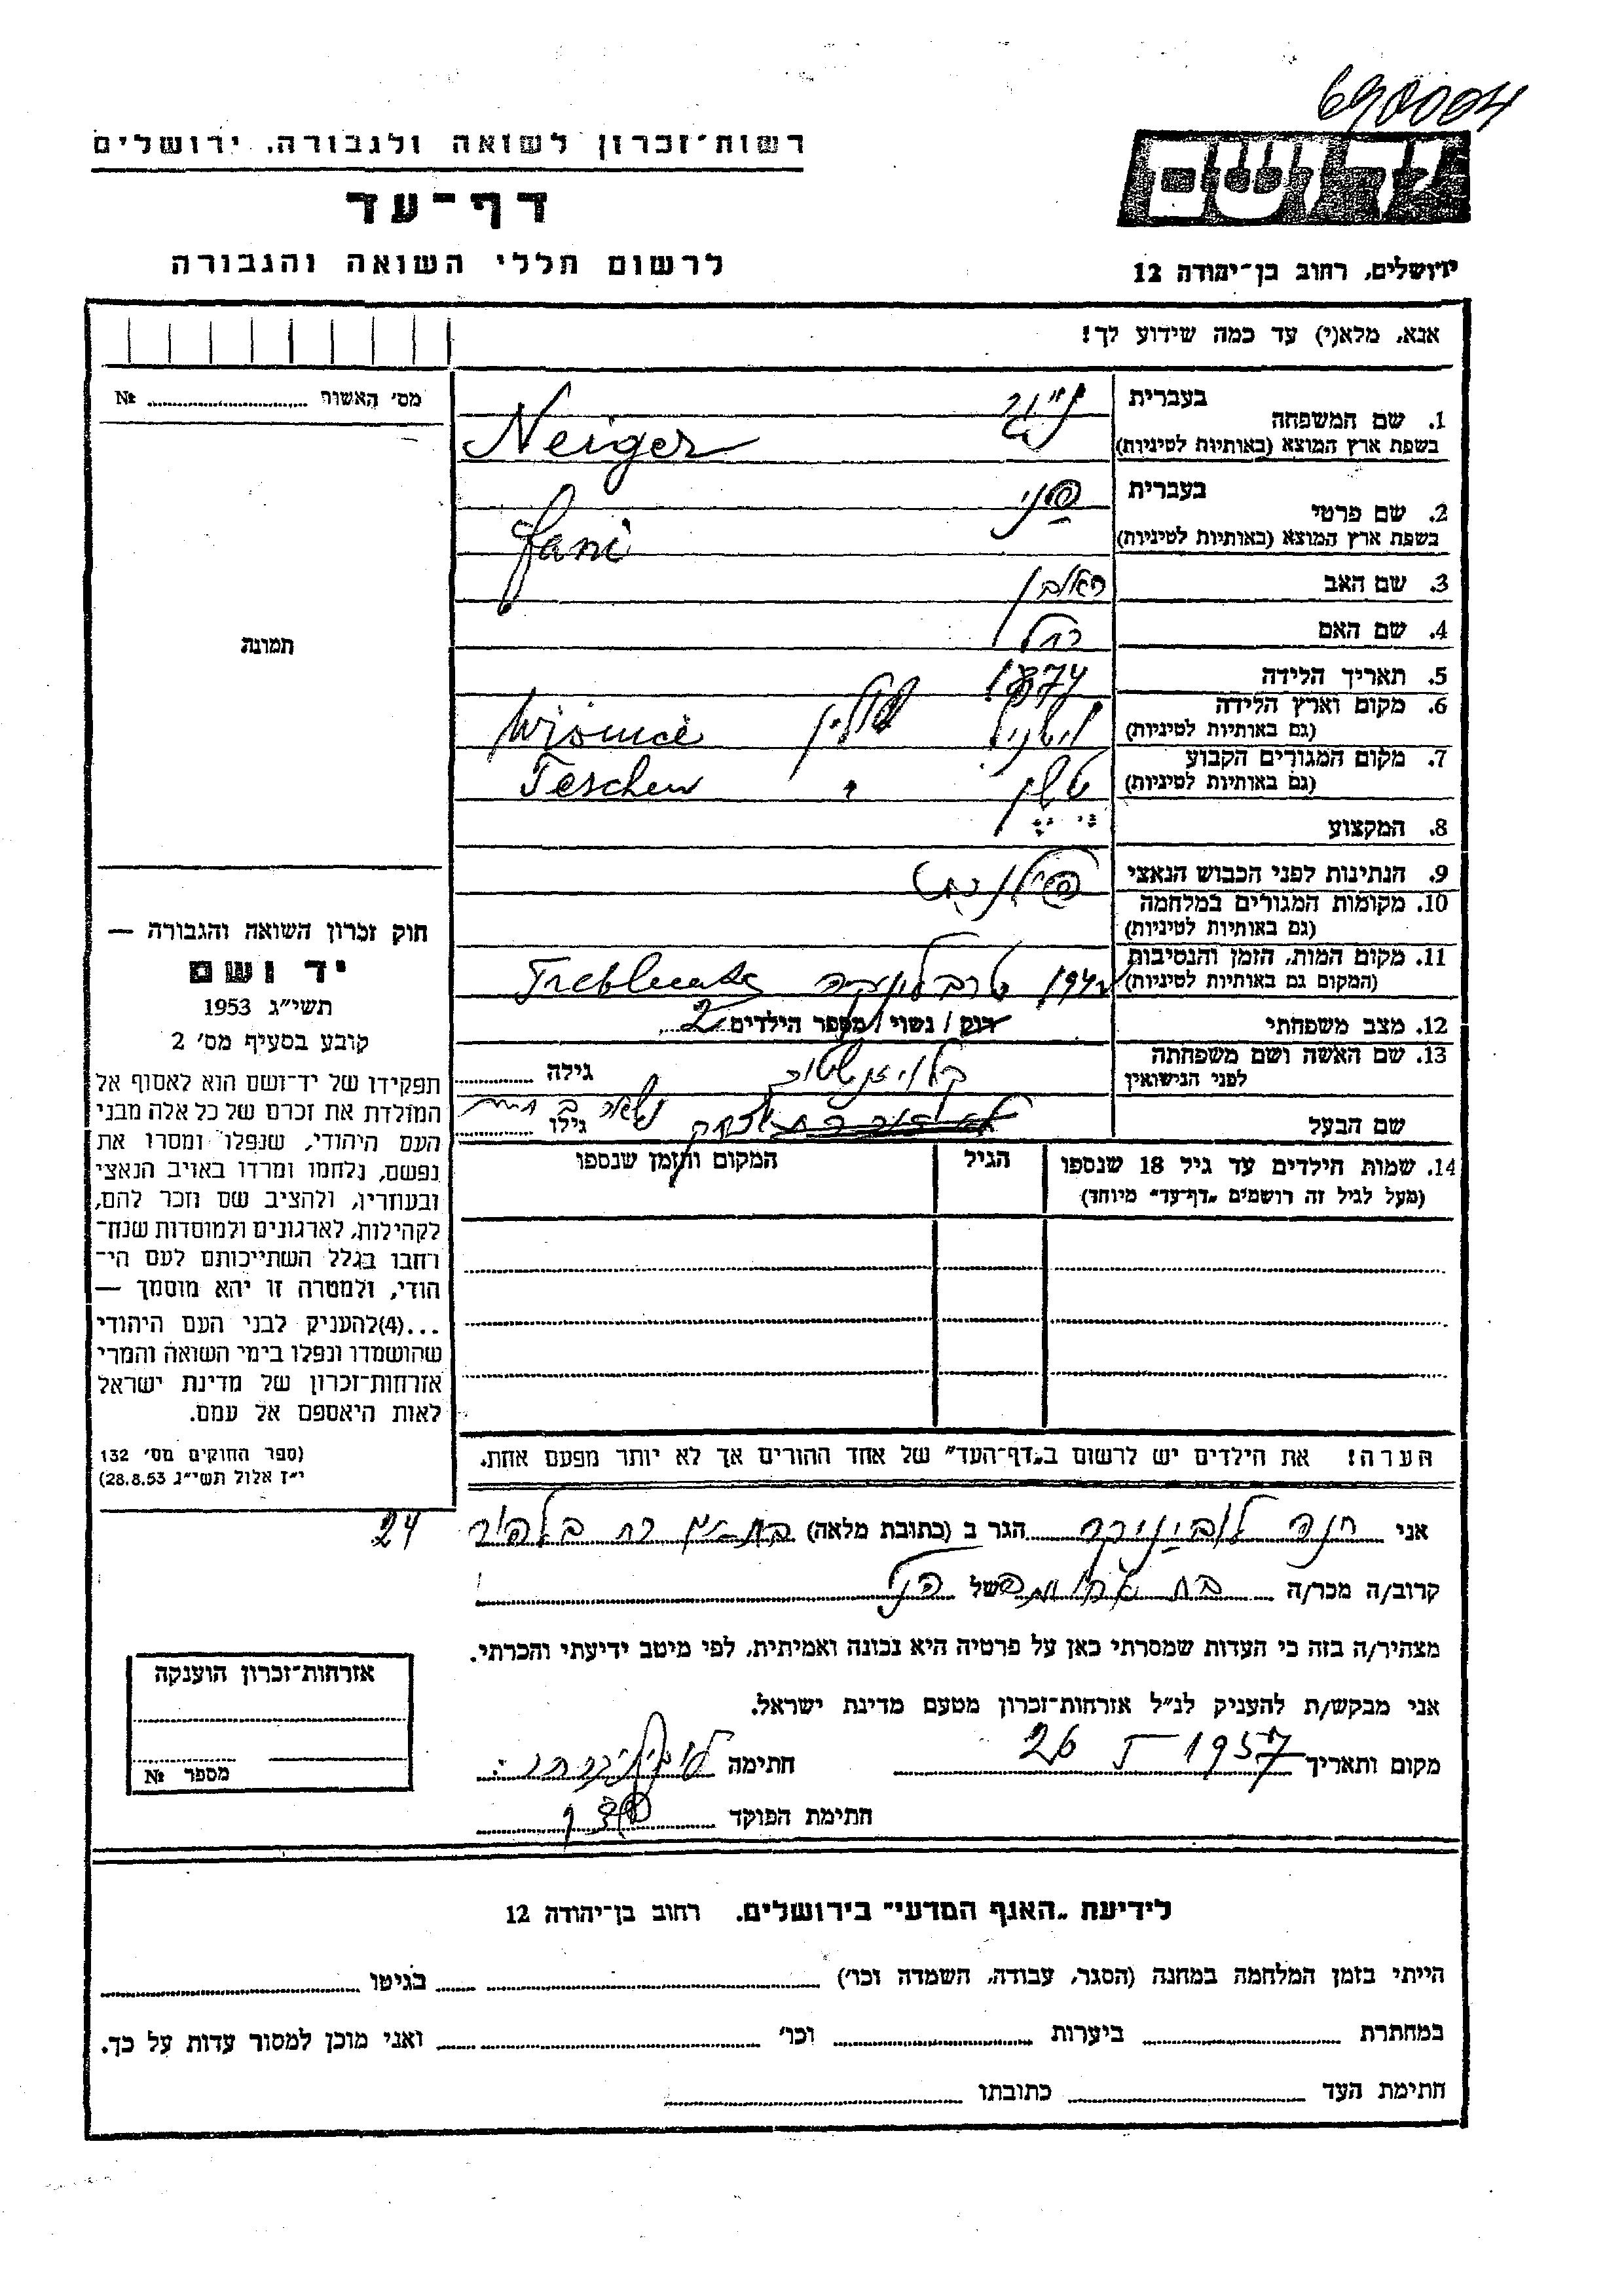 690004
רשות־זכרון לשואה ולגבורה, ירושלים
דף־עד
לרשום חללי השואה והגבורה
יד ושם
ירושלים, רחוב בן־יהודה 12
אנא, מלא(י) עד כמה שידוע לך!
מס׳ האשור № 
1. שם המשפחה בעברית נייגר
בשפת ארץ המוצא (באותיות לטיניות) Neiger
2. שם פרטי בעברית פני
בשפת ארץ המוצא (באותיות לטיניות) Fani
3. שם האב
4. שם האם רחל
5. תאריך הלידה 1874
6. מקום וארץ הלידה
(גם באותיות לטיניות) פולין
7. מקום המגורים הקבוע
(גם באותיות לטיניות) טשן " Teschen
8. המקצוע
9. הנתינות לפני הכבוש הנאצי פולנית
10. מקומות המגורים במלחמה
(גם באותיות לטיניות)
11. מקום המות, הזמן והנסיבות
(המקום גם באותיות לטיניות) 1942 טרבלינקה
12. מצב משפחתי רוק / נשוי / מספר הילדים 2
13. שם האשה ושם משפחתה
לפני הנישואין גילה
שם הבעל גילו
14. שמות הילדים עד גיל 18 שנספו
(מעל לגיל זה רושמים „דף־עד״ מיוחד)
הגיל
המקום והזמן שנספו
תמונה
חוק זכרון השואה והגבורה —
יד ושם
תשי״ג 1953
קובע בסעיף מס׳ 2
תפקידו של יד־ושם הוא לאסוף אל
המולדת את זכרם של כל אלה מבני
העם היהודי, שנפלו ומסרו את
נפשם, נלחמו ומרדו באויב הנאצי
ובעוזריו, ולהציב שם וזכר להם,
לקהילות, לארגונים ולמוסדות שנח־
רחבו בגלל השתייכותם לעם הי־
הודי, ולמטרה זו יהא מוסמך —
...(4)להעניק לבני העם היהודי
שהושמדו ונפלו בימי השואה והמרי
אזרחות־זכרון של מדינת ישראל
לאות היאספם אל עמם.
(ספר החוקים מס׳ 132
י״ז אלול תשי״ג 28.8.53)
הערה! את הילדים יש לרשום ב„דף־העד״ של אחד ההורים אך לא יותר מפעם אחת.
אני חנה הגר ב (כתובת מלאה) בת ים 24
קרוב/ה מכר/ה בת של הנ"ל
מצהיר/ה בזה כי העדות שמסרתי כאן על פרטיה היא נכונה ואמיתית, לפי מיטב ידיעתי והכרתי.
אני מבקש/ת להעניק לנ״ל אזרחות־זכרון מטעם מדינת ישראל.
מקום ותאריך 26 V 1957 חתימה
חתימת הפוקד
אזרחות־זכרון הוענקה
מספר №
לידיעת „האגף המדעי״ בירושלים. רחוב בן־יהודה 12
הייתי בזמן המלחמה במחנה (הסגר, עבודה, השמדה וכו׳) בגיטו
במחתרת ביערות וכו׳ ואני מוכן למסור עדות על כך.
חתימת העד כתובתו